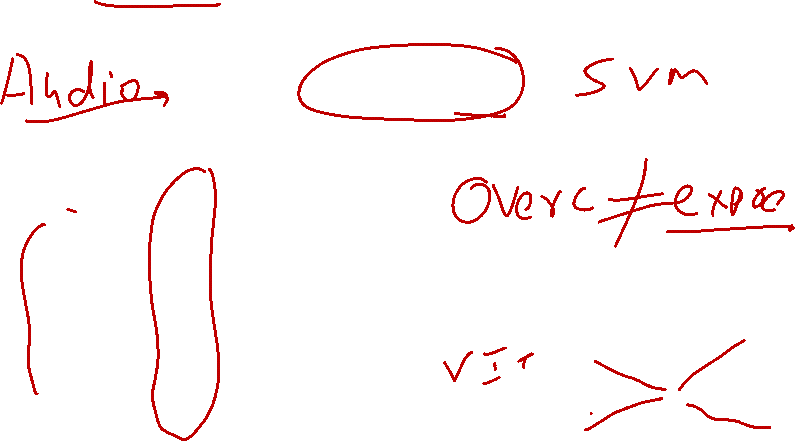 Audio SVM
Overc ≠ expoe
VIT